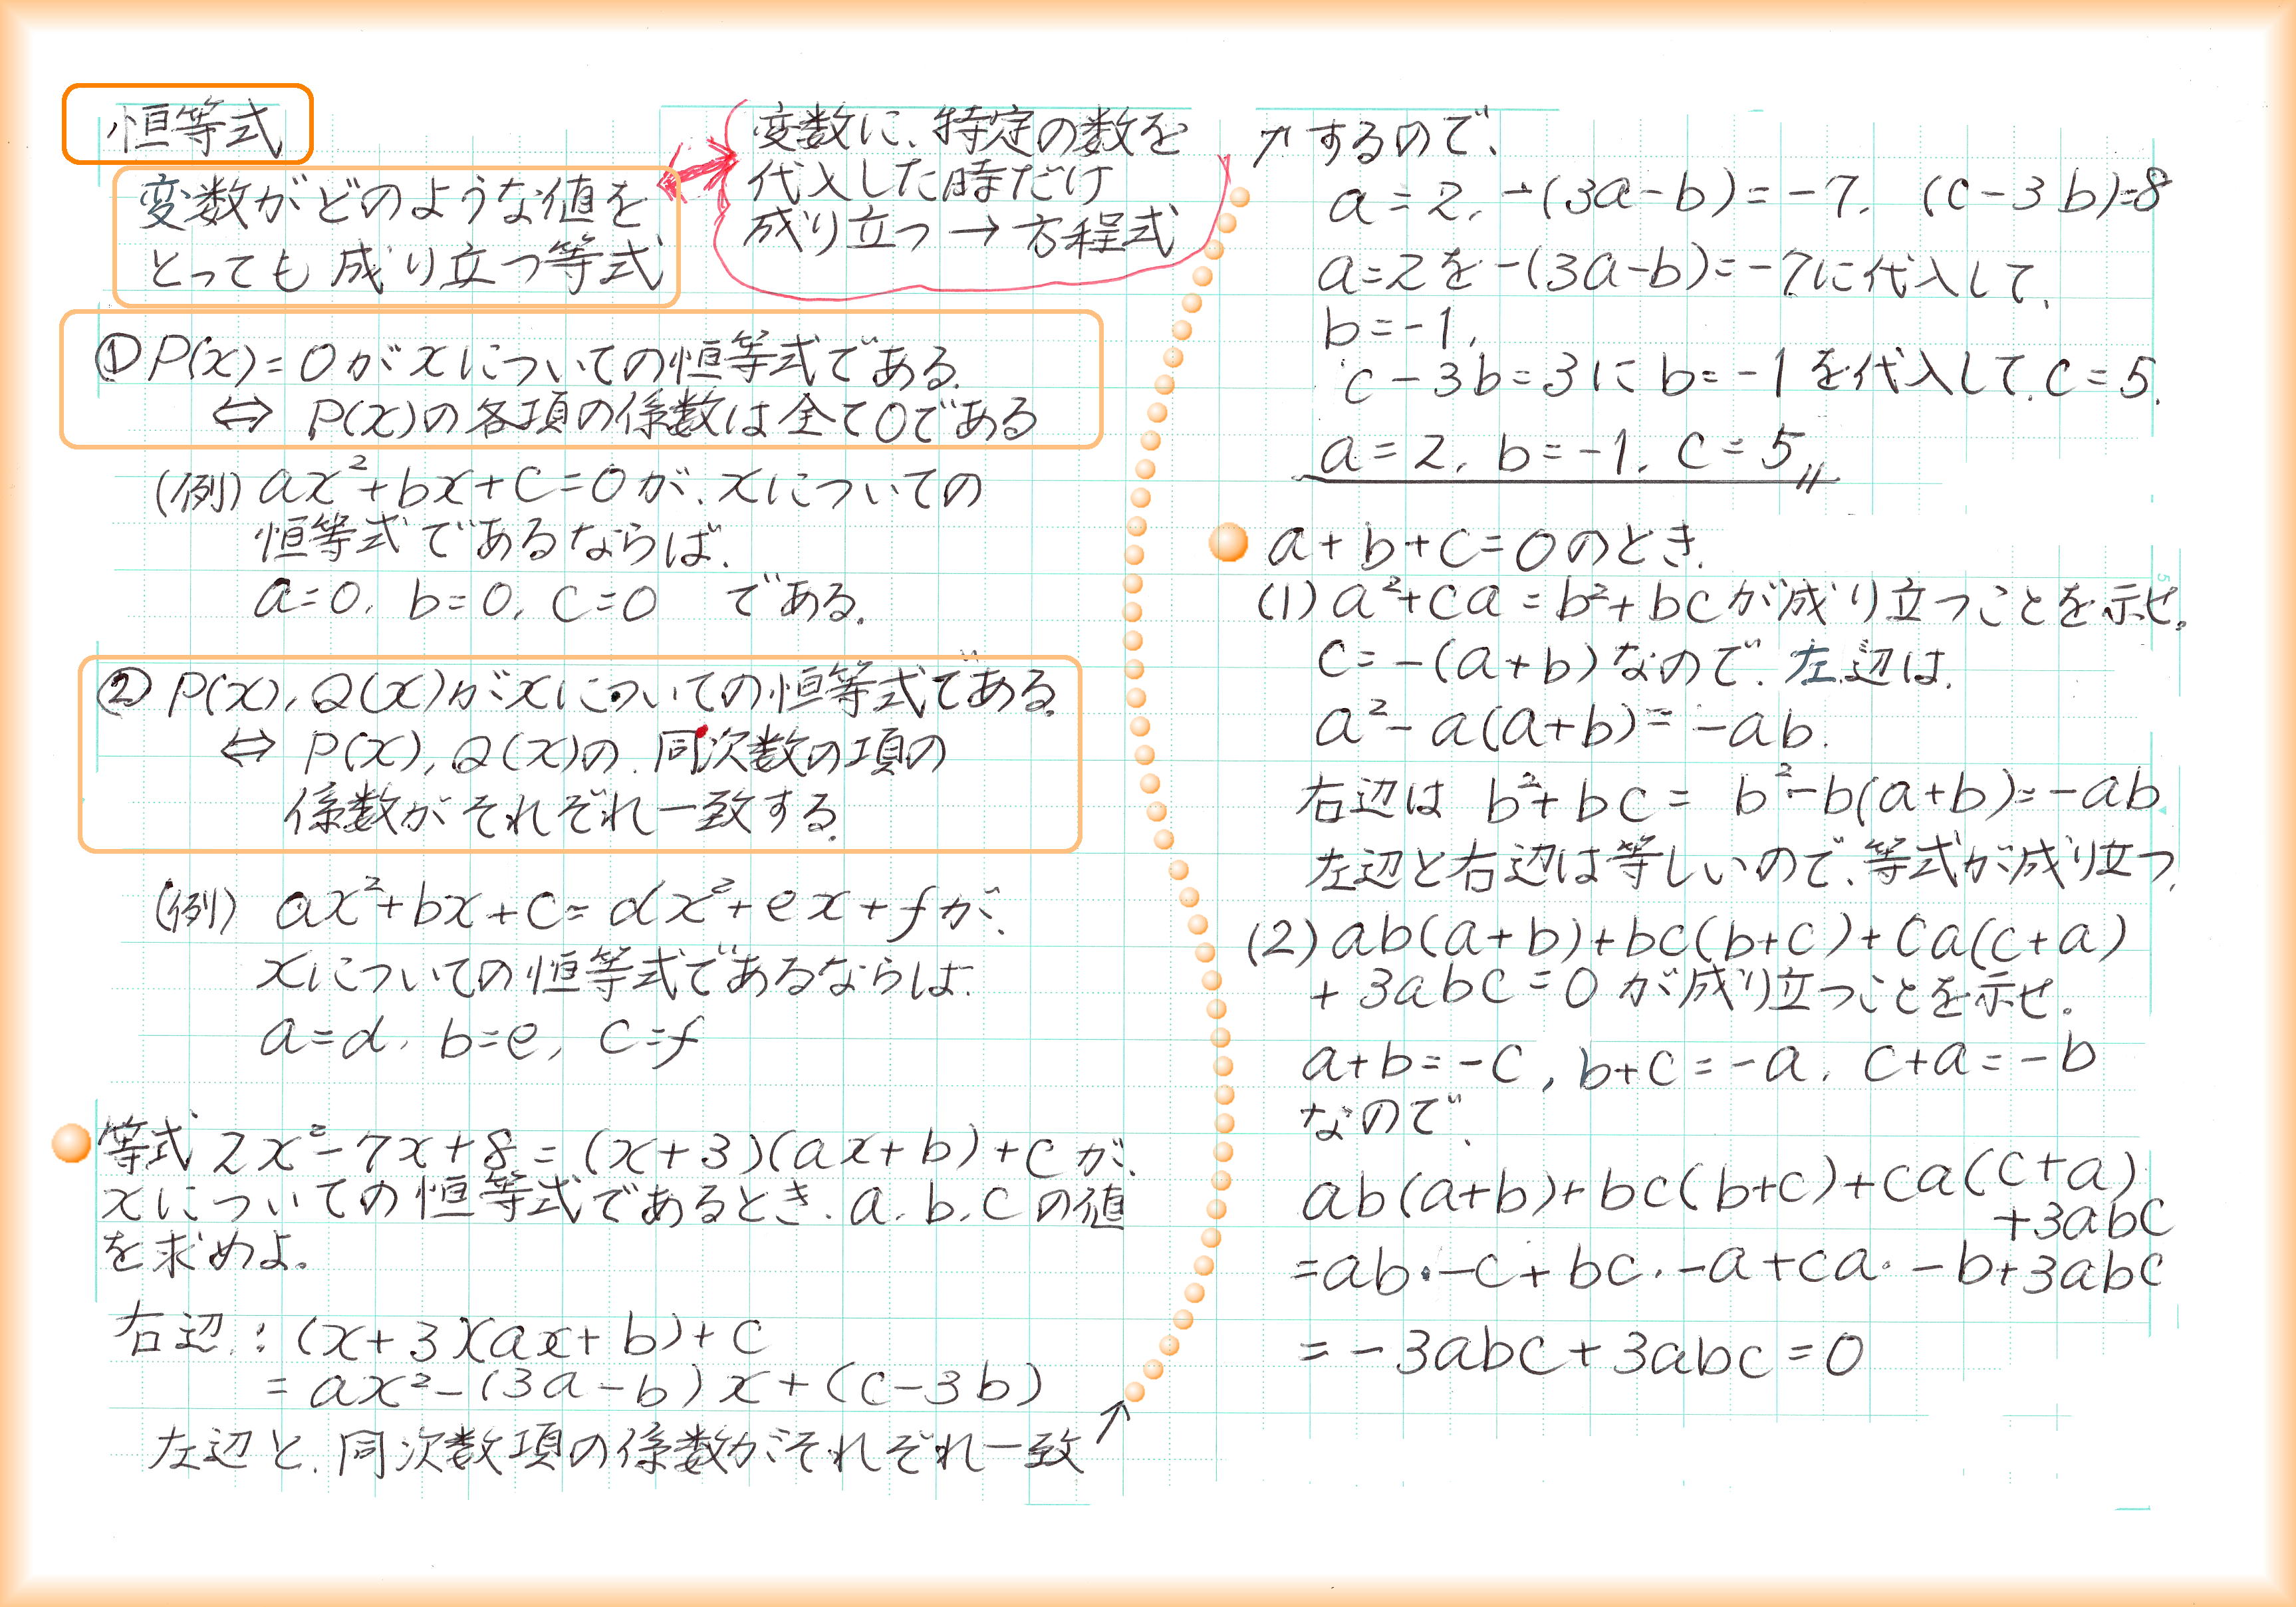 恒等式
変数がどのような値を
とっても成り立つ等式
変数に、特定の数を
代入した時だけ
成り立つ→方程式
① P(x)=0がxについての恒等式である.
⇔ P(x)の各項の係数は全て0である
(例) ax²+bx+c=0が、xについての
恒等式であるならば.
a=0, b=0, c=0 である.
② P(x), Q(x)がxについての恒等式である.
⇔ P(x), Q(x)の、同次数の項の
係数がそれぞれ一致する.
(例) ax²+bx+c=dx²+ex+fが、
xについての恒等式であるならは.
a=d, b=e, c=f
等式 2x²-7x+8=(x+3)(ax+b)+cが、
xについての恒等式であるとき、a, b, cの値
を求めよ。
右辺:(x+3)(ax+b)+c
=ax²-(3a-b)x+(c-3b)
左辺と、同次数項の係数がそれぞれ一致↗
↗するので、
a=2, -(3a-b)=-7, (c-3b)=8
a=2を-(3a-b)=-7に代入して、
b=-1,
c-3b=3にb=-1を代入して、c=5.
a=2, b=-1, c=5 〃
a+b+c=0のとき.
(1) a²+ca=b²+bcが成り立つことを示せ。
c=-(a+b)なので、左辺は.
a²-a(a+b)=-ab.
右辺は b²+bc= b²-b(a+b)=-ab
左辺と右辺は等しいので、等式が成り立つ.
(2) ab(a+b)+bc(b+c)+ca(c+a)
+3abc=0 が成り立つことを示せ。
a+b=-c, b+c=-a, c+a=-b
なので、
ab(a+b)+bc(b+c)+ca(c+a)
+3abc
=ab・-c+bc・-a+ca・-b+3abc
=-3abc+3abc=0